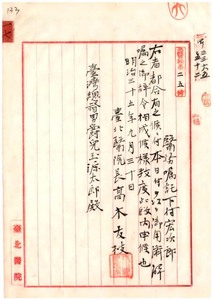 醫務囑託 下村宏次郎
右者都合有之候付本日ヲ以御用濟解
囑之御辭令相成候樣致度此段內申候也
明治三十五年九月三十日
臺北醫院長高木友枝
臺灣總督男爵兒玉源太郎殿
臺北醫院